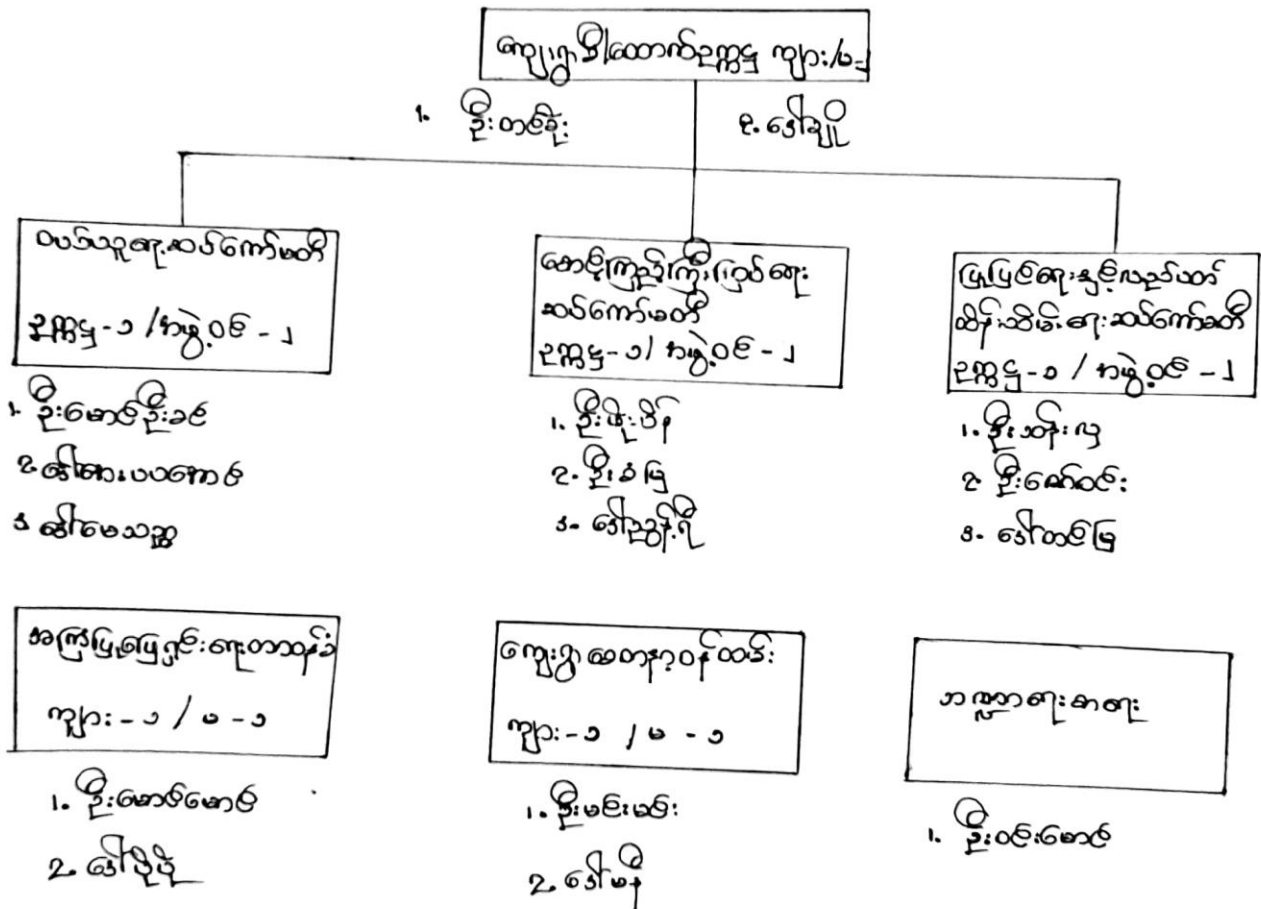 ကျေးရွာဒါထောက်ဥက္ကဋ္ဌ ကျား/မ-၂
1. ဦးတင်စိုး
2. ဒေါ်ချို
ဝယ်ယူရေးဆပ်ကော်မတီ
ဥက္ကဋ္ဌ-၁ /အဖွဲ့ဝင် - ၂
1. ဦးမောင်ဦးခင်
2. ဒေါ်အေးပပကောင်
3. ဒေါ်မေသဏ္ဍ
စောင့်ကြည့်ကြီးကြပ်ရေး
ဆပ်ကော်မတီ
ဥက္ကဋ္ဌ-၁/ အဖွဲ့ဝင် - ၂
1. ဦးဖိုးပိန်
2. ဦးခံမြ
3. ဒေါ်ညွန့်ရီ
ပြုပြင်ရေးနှင့်လည်ပတ်
ထိန်းသိမ်းရေးဆပ်ကော်မတီ
ဥက္ကဋ္ဌ-၁ / အဖွဲ့ဝင် - ၂
1. ဦးသန်းလှ
2. ဦးဇော်ဝင်း
3. ဒေါ်တင်မြ
အကြံပြုဖြေရှင်းရေးတာဝန်ခံ
ကျား - ၁ / မ - ၁
1. ဦးမောင်မောင်
2. ဒေါ်ပိုပို
ကျေးရွာစေတနာ့ဝန်ထမ်း
ကျား - ၁ / မ - ၁
1. ဦးမင်းမင်း
2. ဒေါ်မနီ
ဘဏ္ဍာရေးစာရေး
1. ဦးဝင်းမောင်